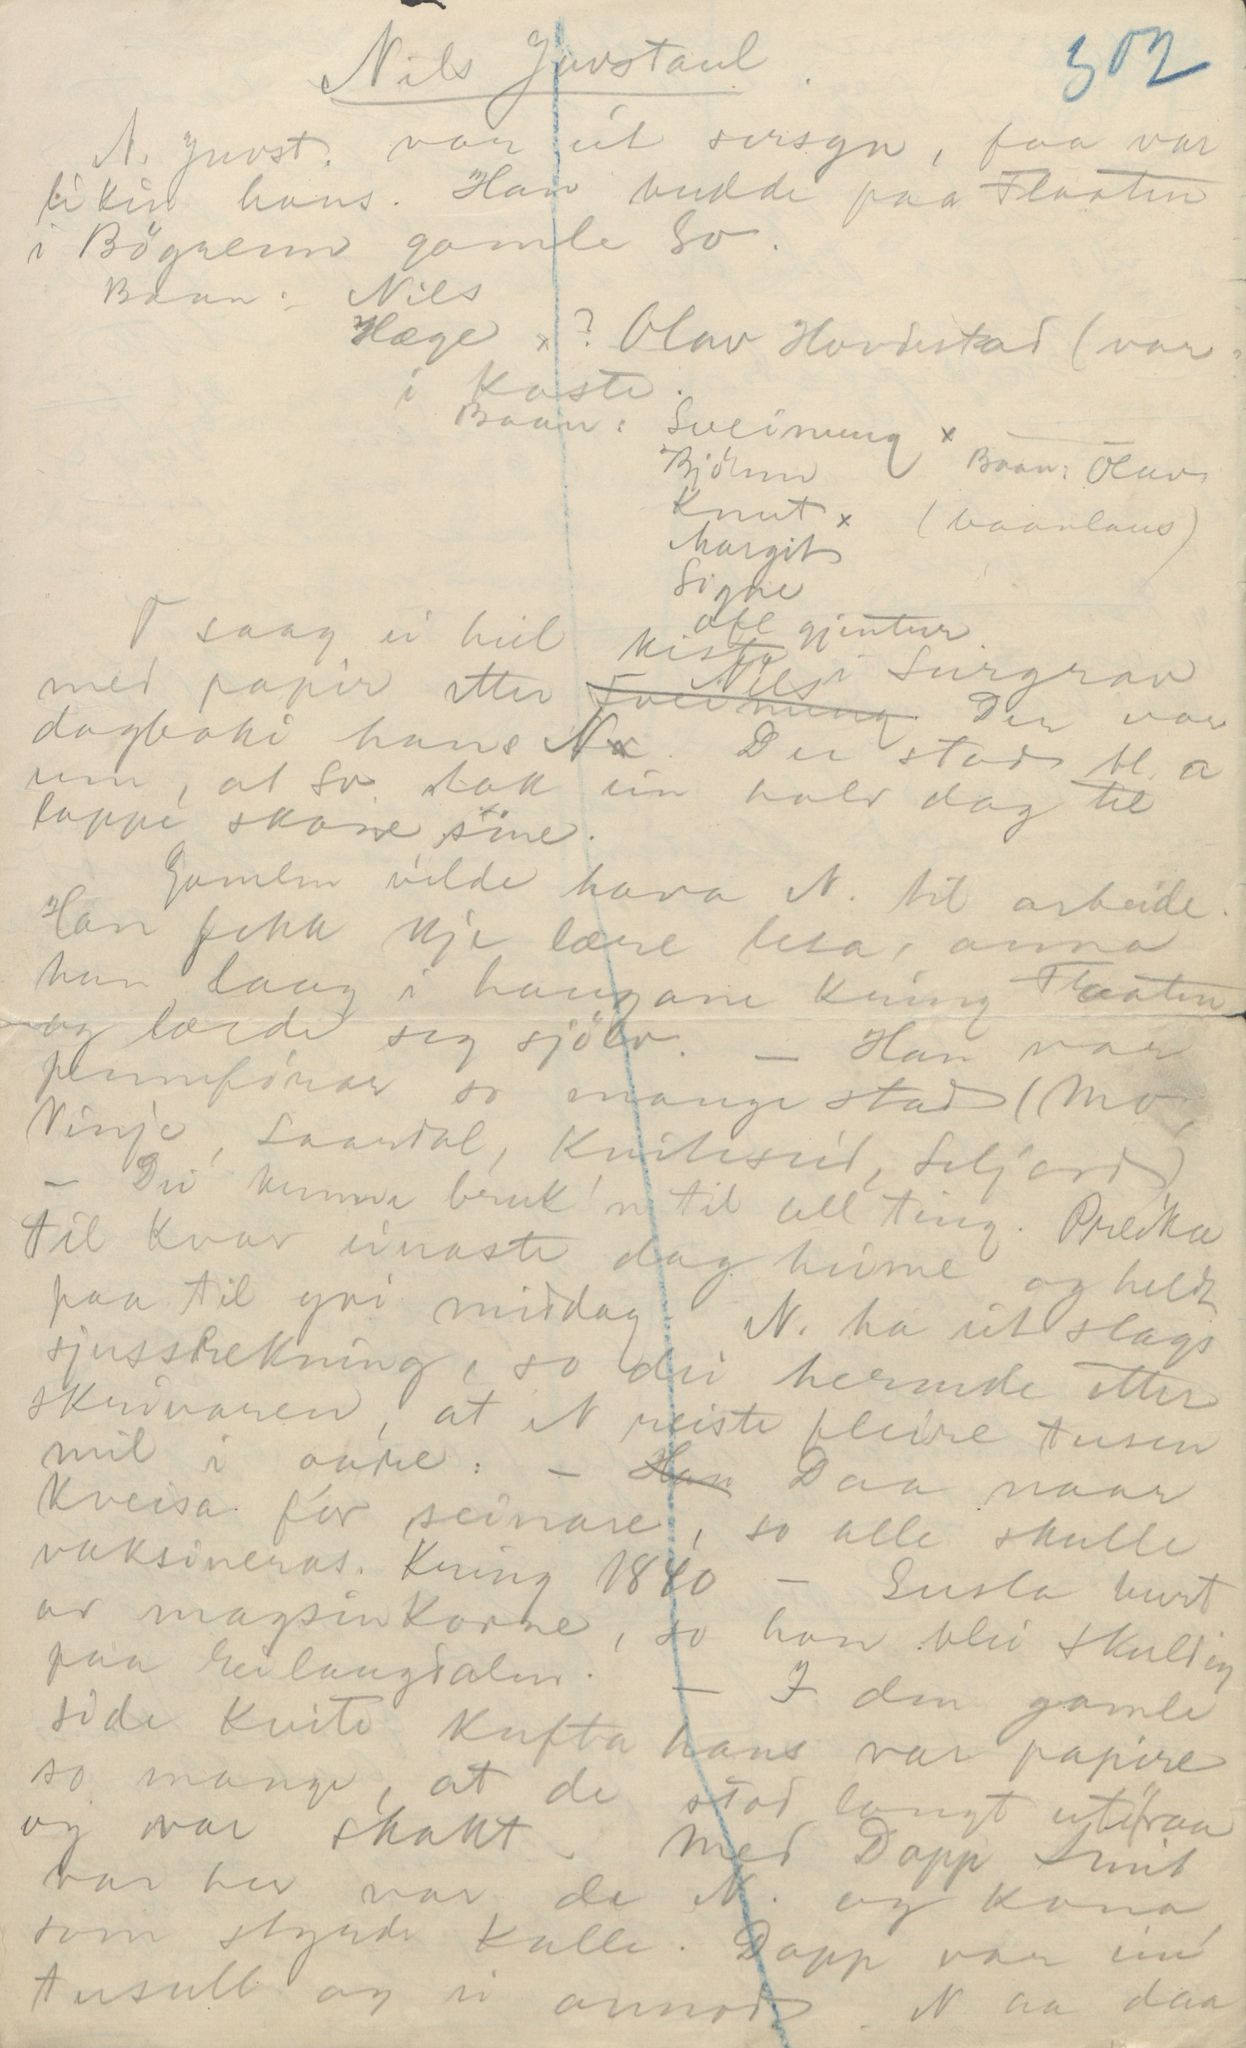 Nils Juvstaul.
302
N. Juvst. var eit sersyn, faa var
likin hans. Han budde paa Flaaten
i Bögrenn gamle so.
Baan: Nils
Hæge x ? Olav Hovdestad (var
i Kaste.
Baan: Sveinung x Baan: Olav
Björnn
Knut x (baanlaus)
Margit
Signe
att gjentur
T saag ei heil kista i Surgrav
med papir etter Sveinung Nils. Der var
dagboki hans N. Der stod bl. a
um, at so tok ein halv dag til
lappe skone sine.
Gamlen vilde hava N. til arbeide.
Han fekk kje lære lesa, anna
han laag i haugane kring Flaaten
og lærde seg sjölv. – Han var
pennförar so mange stad (Mo,
Vinje, Laardal, Kviteseid, Seljord)
– Dei kunne bruk'n til all ting. Preika
til kvar einaste dag heime og heldt
paa til yvi middag. N. ha eit slags
sjusstrekning, so dei herunde etter
skrivaren, at N reiste fleire tusen
mil i aaret. – Han Daa naar
Kveisa för seinare, so alle skulle
vaksineras. Kring 1840 – Susla burt
av magsinkorne, so han blei skuldig
paa Eilaugdalen. – I den gamle
side kvite kufta hans var papire
so mange, at de stod langt utifraa
og var skakt. Med Dapp Smit
var her var de N. og kona,
som styrde kalle. Dapp var ein
tusull og ei annod. N aa daa